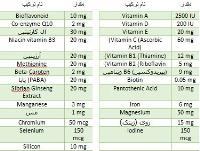 نام ترکیب مقدار نام ترکیب مقدار
Vitamin A 2500 IU Bioflavonoid 10 mg
Vitamin D 200 IU Co-enzyme Q10 2 mg
ویتامین E 20 mg ال کارنیتین 30 mg
(Vitamin C (Ascorbic Acid) 60 mg Niacin vitamin B3 20 mg
(Vitamin B1 (Thiamine) 12 mg آرژینین 20 mg
Vitamin B2 ( Riboflavin) 5 mg Methionine 20 mg
ویتامین B6 (پیریدوکسین) 9 mg Beta-Caroten 2 mg
Biotin 0.05 mg پابا (PABA) 20 mg
Pantothenic Acid 10 mg Siberian Ginseng Extract 20 mg
Iron 6 mg Manganese 3 mg
Magnesium 50 mg مس 1 mg
روی (زینک) 15 mg Chromium 50 mcg
Iodine 150 mcg Selenium 150 mcg
Silicon 10 mg